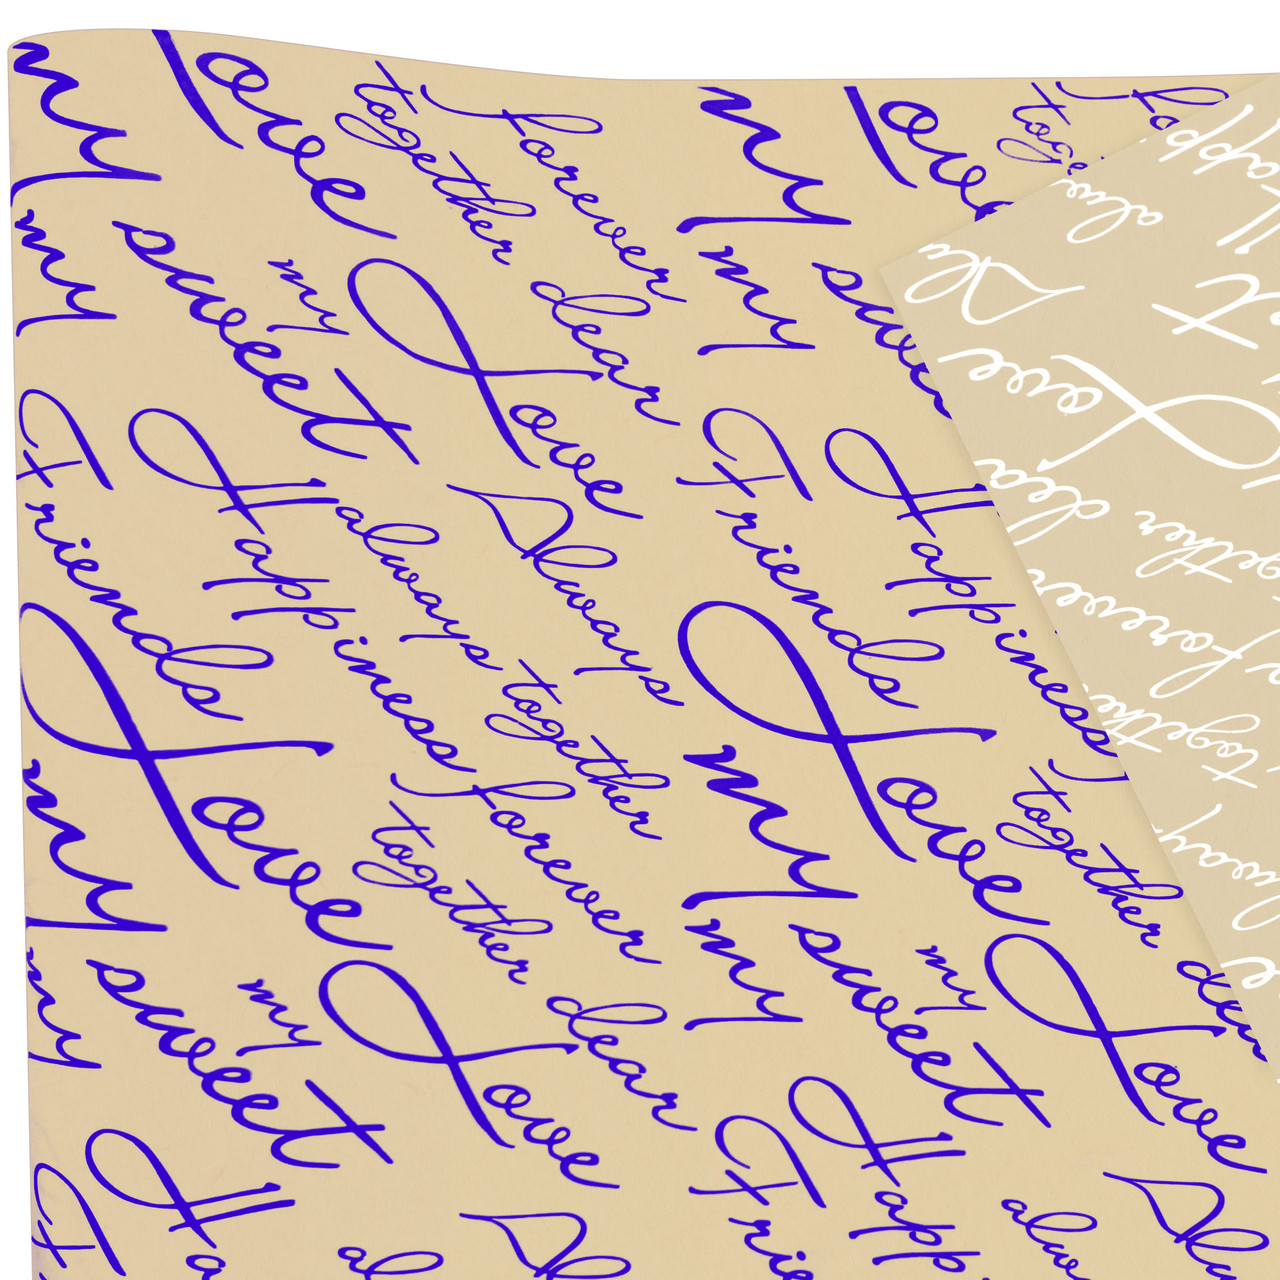 my Love
together forever
my sweet
my Love
dear
Friends
Happiness
always
Always
together
Love
my
forever
together
my sweet
my Love
dear
my Love
together
my sweet
Friends
Happiness
Love
together
my
my sweet
my Love
Happ
Always
Love
forever
together